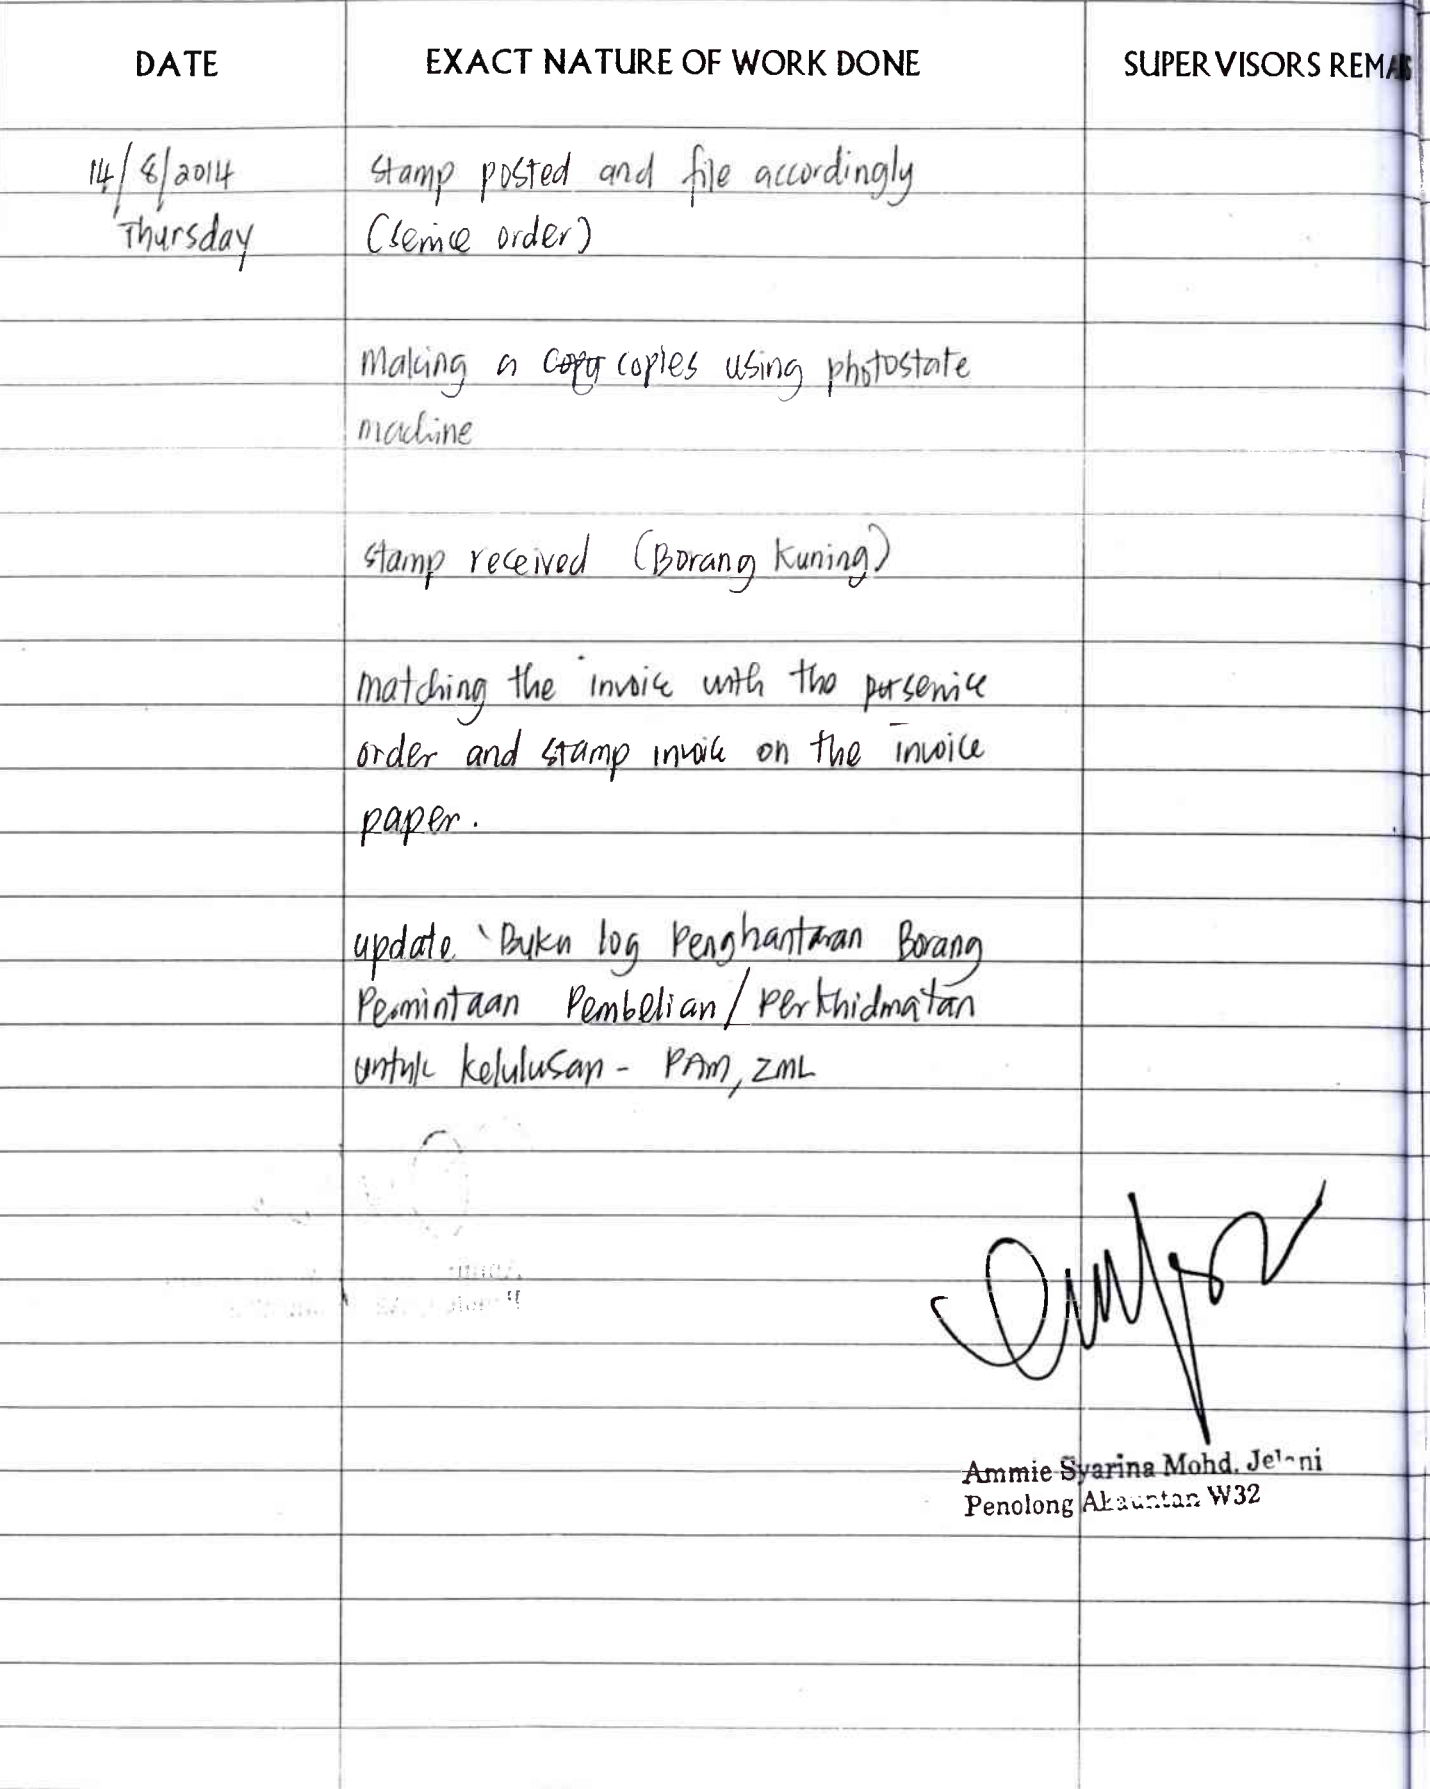 DATE EXACT NATURE OF WORK DONE SUPERVISORS REMA
14/8/2014 stamp posted and file accordingly
Thursday (service order)
Making a copy copies using photostate
machine
stamp received (Borang Kuning)
matching the invoice with the service
order and stamp invoice on the invoice
paper.
update 'Buku log Penghantaran Borang
Permintaan Pembelian/Perkhidmatan
untuk kelulusan - PAM, ZML
Ammie Syarina Mohd. Jelani
Penolong Akauntan W32